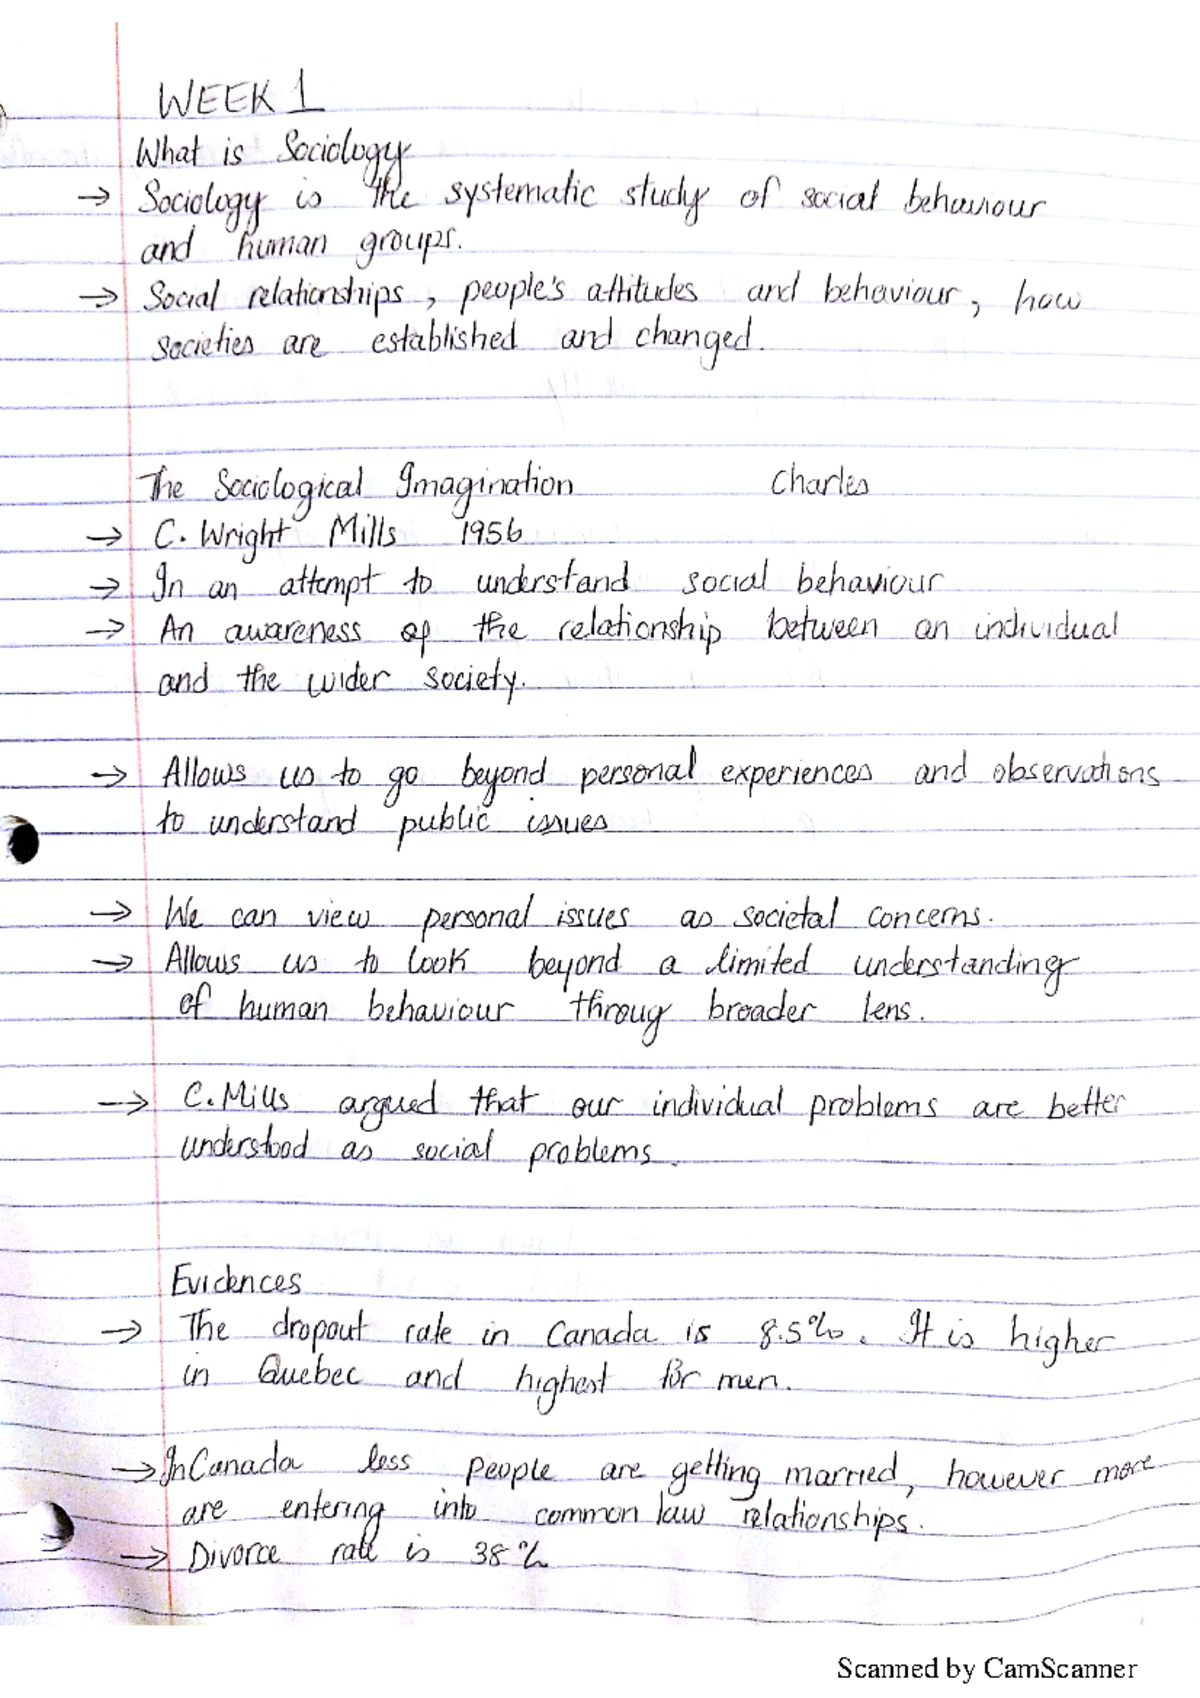 WEEK 1
What is Sociology
→ Sociology is the systematic study of social behaviour
and human groups.
→ Social relationships, people's attitudes and behaviour, how
societies are established and changed.
The Sociological Imagination Charles
→ C. Wright Mills 1956
→ In an attempt to understand social behaviour
→ An awareness of the relationship between an individual
and the wider society.
→ Allows us to go beyond personal experiences and observations
to understand public issues
→ We can view personal issues as societal concerns.
→ Allows us to look beyond a limited understanding
of human behaviour throug broader lens.
→ C. Mills argued that our individual problems are better
understood as social problems.
Evidences
→ The dropout rate in Canada is 8.5%. It is higher
in Quebec and highest for men.
→ In Canada less people are getting married, however more
are entering into common law relationships.
→ Divorce rate is 38%
Scanned by CamScanner